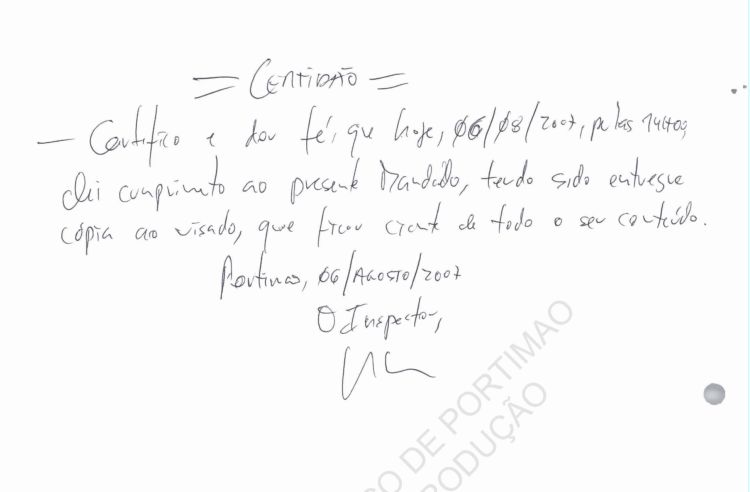 = CERTIDÃO =
— Certifico e dou fé, que hoje, 06/08/2007, pelas 14H00,
dei cumprimento ao presente Mandado, tendo sido entregue
cópia ao visado, que ficou ciente de todo o seu conteúdo.
Portimão, 06/AGOSTO/2007
O Inspector,
O DE PORTIMAO
RODUÇÃO